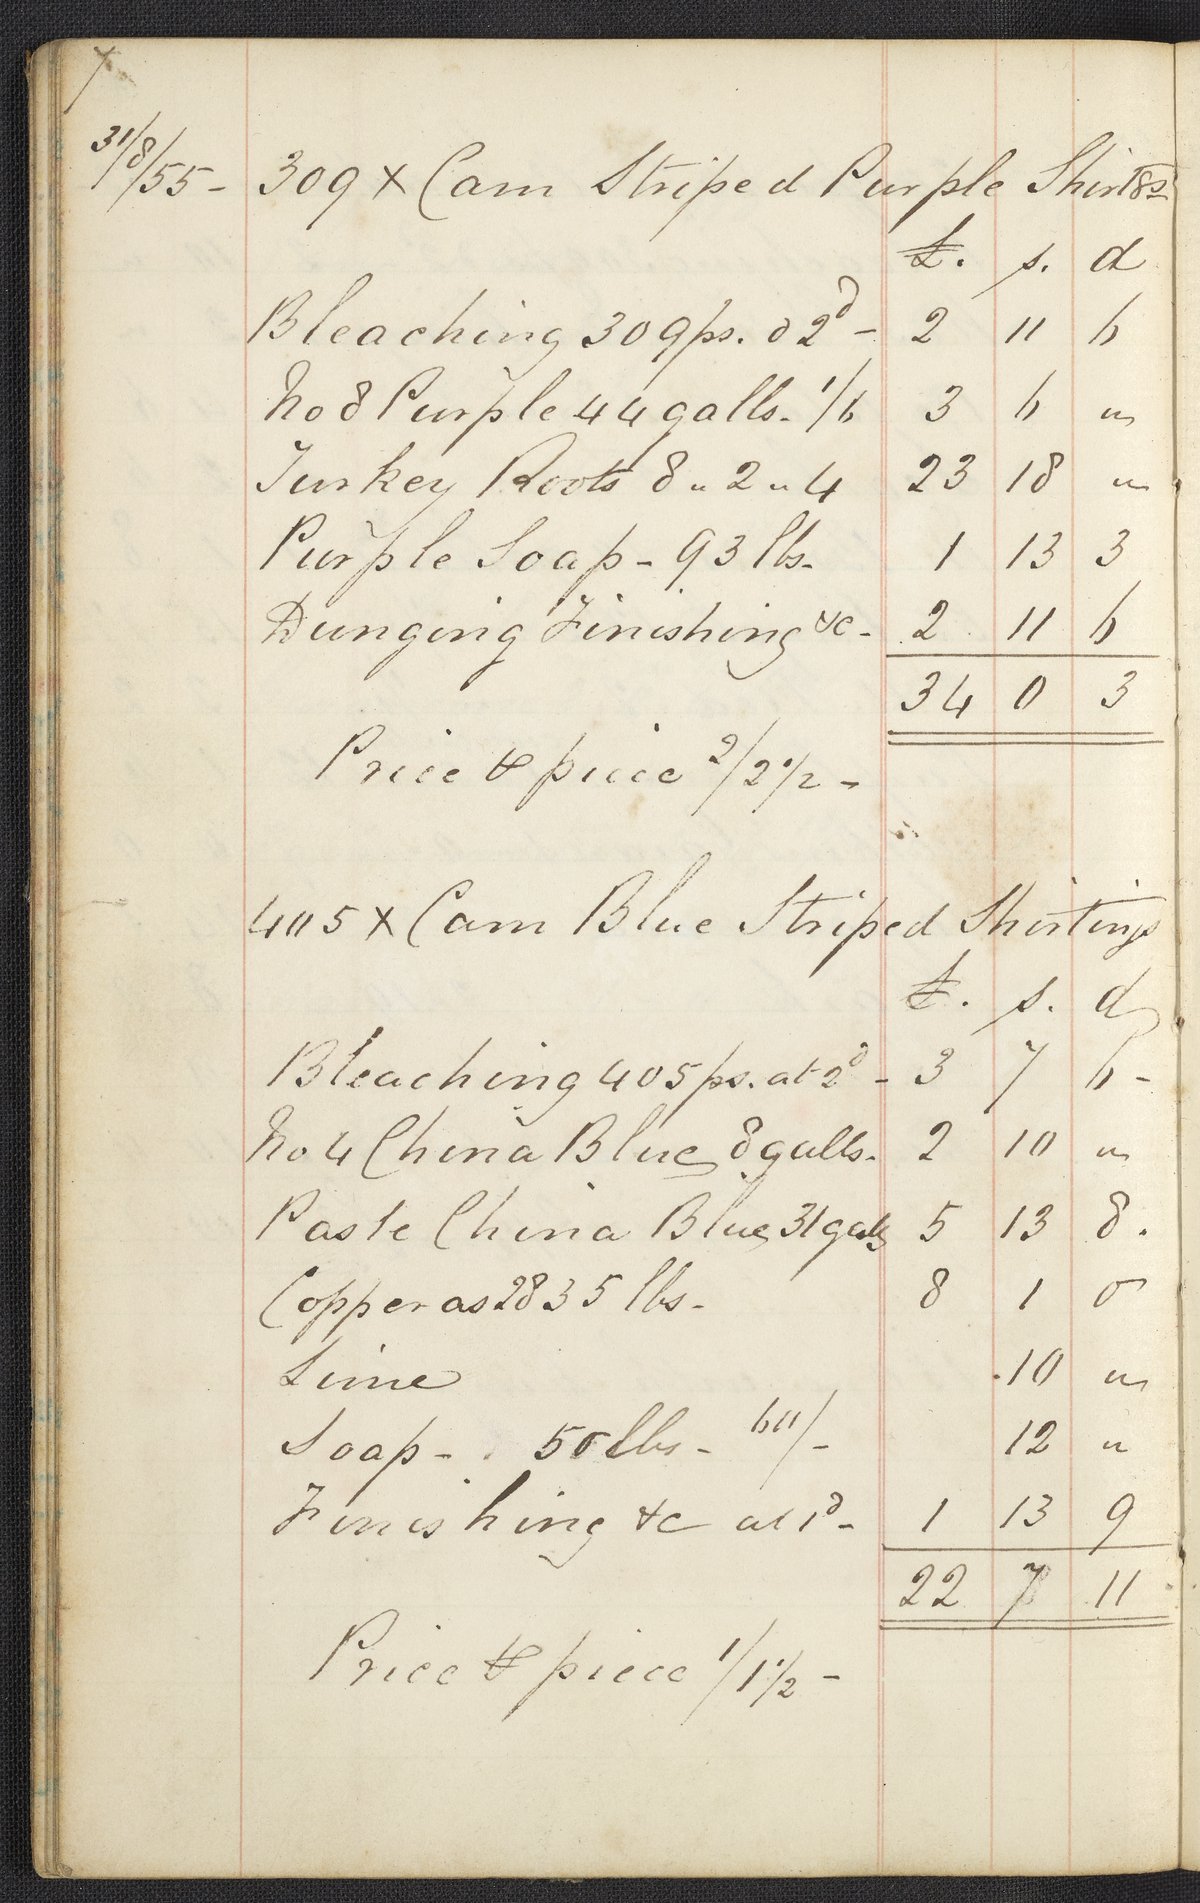 31/8/55 - 309 X Cam Striped Purple Shirtgs
£. s. d
Bleaching 309 ps. @ 2d - 2 11 6
No 8 Purple 44 galls. 1/6 3 6 "
Turkey Roots 8 " 2 " 4 23 18 "
Purple Soap - 93 lbs. 1 13 3
Dunging Finishing &c - 2 11 6
34 0 3
Price ⅌ piece 2/2 1/2 -
405 X Cam Blue Striped Shirtings
£. s. d
Bleaching 405 ps. at 2d - 3 7 6 -
No 4 China Blue 8 galls. 2 10 "
Paste China Blue 31 galls 5 13 8.
Copperas 2835 lbs. 8 1 0
Lime 10 "
Soap - 50 lbs - 60/- 12 "
Finishing &c at 1d - 1 13 9
22 7 11
Price ⅌ piece 1/1 1/2 -